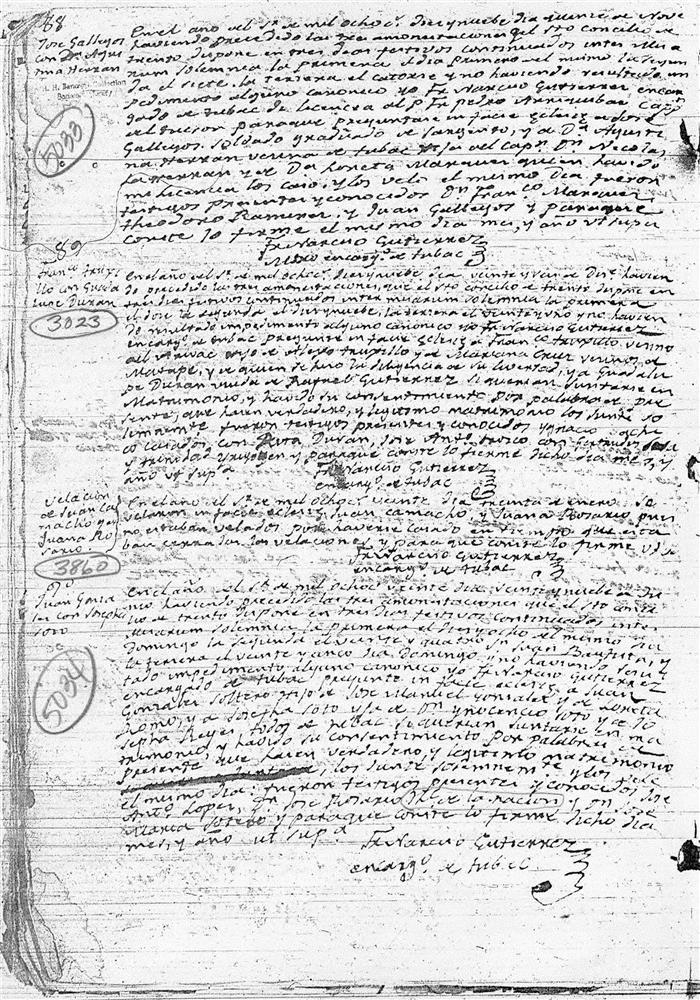 88
Jose Gallegos
con Da. Agus
tina Herran
5033
En el año del Sr. de mil ochoc.s diez y nuebe dia quinze de Nove
haviendo precedido las tres amonestaciones que el Sto concilio de
trento dispone en tres dias festivos continuados inter Missa
rum solemnia la primera el dia primero del mismo la segun
da el siete la tersera el catorse y no haviendo resultado im
pedimento alguno canonico yo Fr Narcico Gutierrez encar
gado de tubac di licencia al P. Fr Pedro
del tucson paraque preguntase in facie eclesie a Jose
Gallegos soldado graduado de sargento, y a Da. Agusti
na Herran vecina de tubac hija del capn. Dn Nicolas
de la Herran y de Da Loreta Marquez quien havido
mi licencia los caso, y los velo el mismo dia fueron
testigos presentes y conocidos Dn Franco. Marquez
theodoro Ramirez, y Juan Gallegos y paraque
conste lo firme el mismo dia mes, y año ut supa
Fr Narciso Gutierrez
Mtro encargo. de tubac
89
Franco truxi
llo con Guada
lupe Duran
3023
En el año del Sr. de mil ochoc.s diez y nuebe dia veinte y seis de Dice. havien
do precedido las tres amonestaciones, que el sto concilio de trento dispone en
tres dias festivos continuados inter missarum solemnia la primera
el doce la segunda el diez y nuebe, la tersera el veinte y uno y no havien
do resultado impedimento alguno canonico yo Fr Narciso Gutierrez
encargo. de tubac pregunte in facie eclesie a Franco. truxillo vecino
del Arivac hijo de truxillo y de Mariana Cruz vecinos de
Matape, y de quien se hizo la diligencia de su libertad, y a Guadalu
pe Duran viuda de Rafael Gutierrez si querian juntarse en
Matrimonio, y havido su consentimiento por palabras de pre
sente, que hasen verdadero, y legitimo matrimonio los junte so
lemnemente fueron testigos presentes y conocidos Ygnacio
co casados, con Rita Duran, Jose Anto. orosco con Gertrudis
y trinidad Yrigoyen y paraque conste lo firme dicho dia mes, y
año ut supa
Fr Narciso Gutierrez
encargo. de tubac
velacion
de Juan Ca
macho y de
Juana Ro
sario.
3860
En el año del Sr. de mil ochoc.s veinte dia treinta de enero se
velaron in facie eclesie Juan Camacho, y Juana Rosario pues
no estaban velados por haverse casado en tiempo que esta
ban cerradas las velaciones y para que conste lo firme ut s
Fr Narciso Gutierrez
encargo. de tubac
90
Juan Gonza
les con Josepha
soto
5034
En el año del Sr. de mil ochoc.s veinte dia veinte y nuebe de Ju
nio, haviendo precedido las tres amonestaciones que el sto conci
lio de trento dispone en tres dias festivos continuados inter
Missarum solemnia la primera el diez y ocho del mismo dia
Domingo la segunda el veinte y quatro Sn Juan Bautista, y
la tersera el veinte y cinco dia Domingo y no haviendo resul
tado impedimento alguno canonico yo Fr Narciso Gutierrez
encargado de tubac pregunte in facie eclesie a Juan
Gonzales soltero hijo de Jose Manuel Gonzales y de Loreta
Romo, y a Josepha Soto hija de Dn Ynocencio Soto y de Jo
sepha Reyes, todos de tubac si querian juntarse en ma
trimonio y havido su consentimiento por palabras de
presente que hasen verdadero, y legitimo matrimonio
los junte solemneme. y los vele
el mismo dia: fueron testigos presentes y conocidos Jose
Anto. Lopez, Dn Jose Rosario de la nacion y Dn Jose
Maria Sotelo y paraque conste lo firme dicho dia
mes, y año ut supa.
Fr Narciso Gutierrez
encargo. de tubac